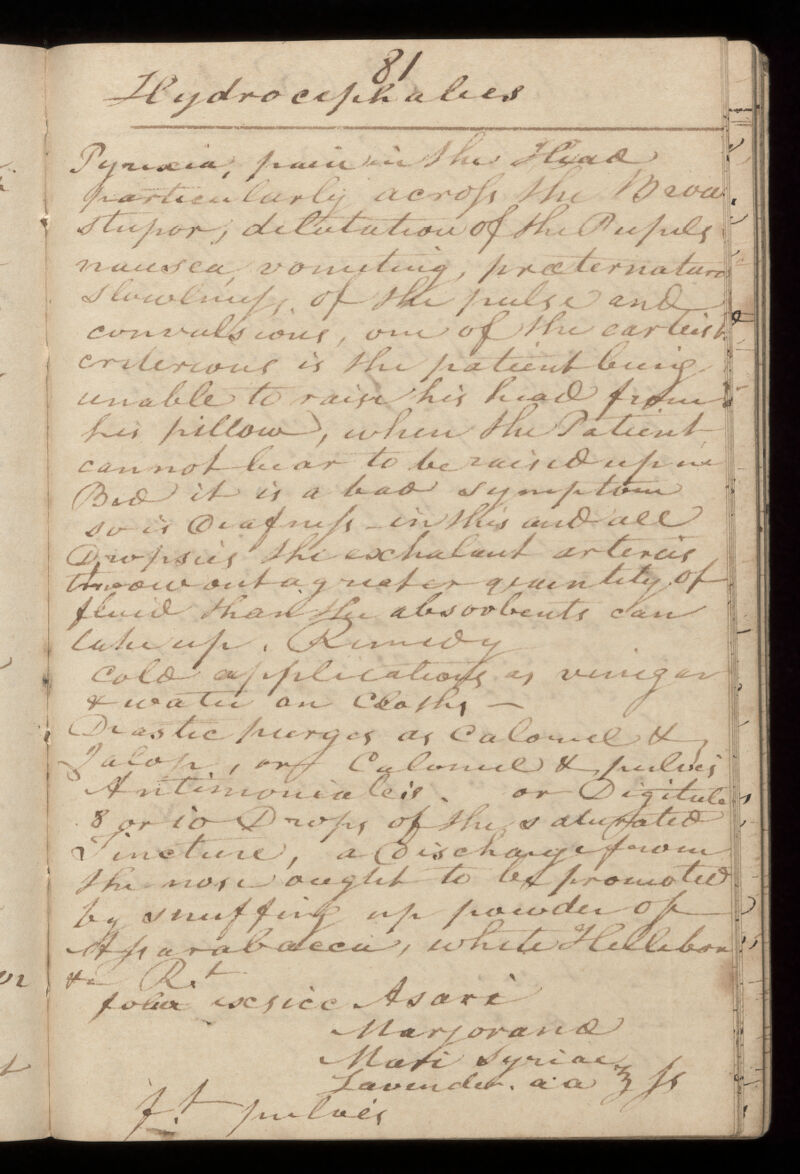 81
Hydrocephalus
Pyrexia, pain in the Head
particularly across the Brow
stupor, dilutation of the Pupils
nausea, vomiting, præternatura
slowlness, of the pulse and
convulsions, one of the earleist
criterions is the patient being
unable to raise his head from
his pillow, when the Patient
cannot bear to be raised up in
Bed it is a bad symptom
so is Deafness - in this and all
Dropsies the exhalent arteries
throw out a greater quaintity of
fluid than the absorbents can
take up. Remedy
cold applications as vinegar
& water on Cloths -
Drastic purges as Calomel &
Jalop, or Calomel & pulvis
Antimonialeis. or Digitale
8 or 10 Drops of the saturated
Tincture, a Discharge from
the nose ought to be promoted
by snuffing up powder of
Assarabacca, white Hellebore
&c R.t
folia exsicc Asari
Marjorana
Mari Syriac
Lavender. aa ʒ ſs
f.t pulvis